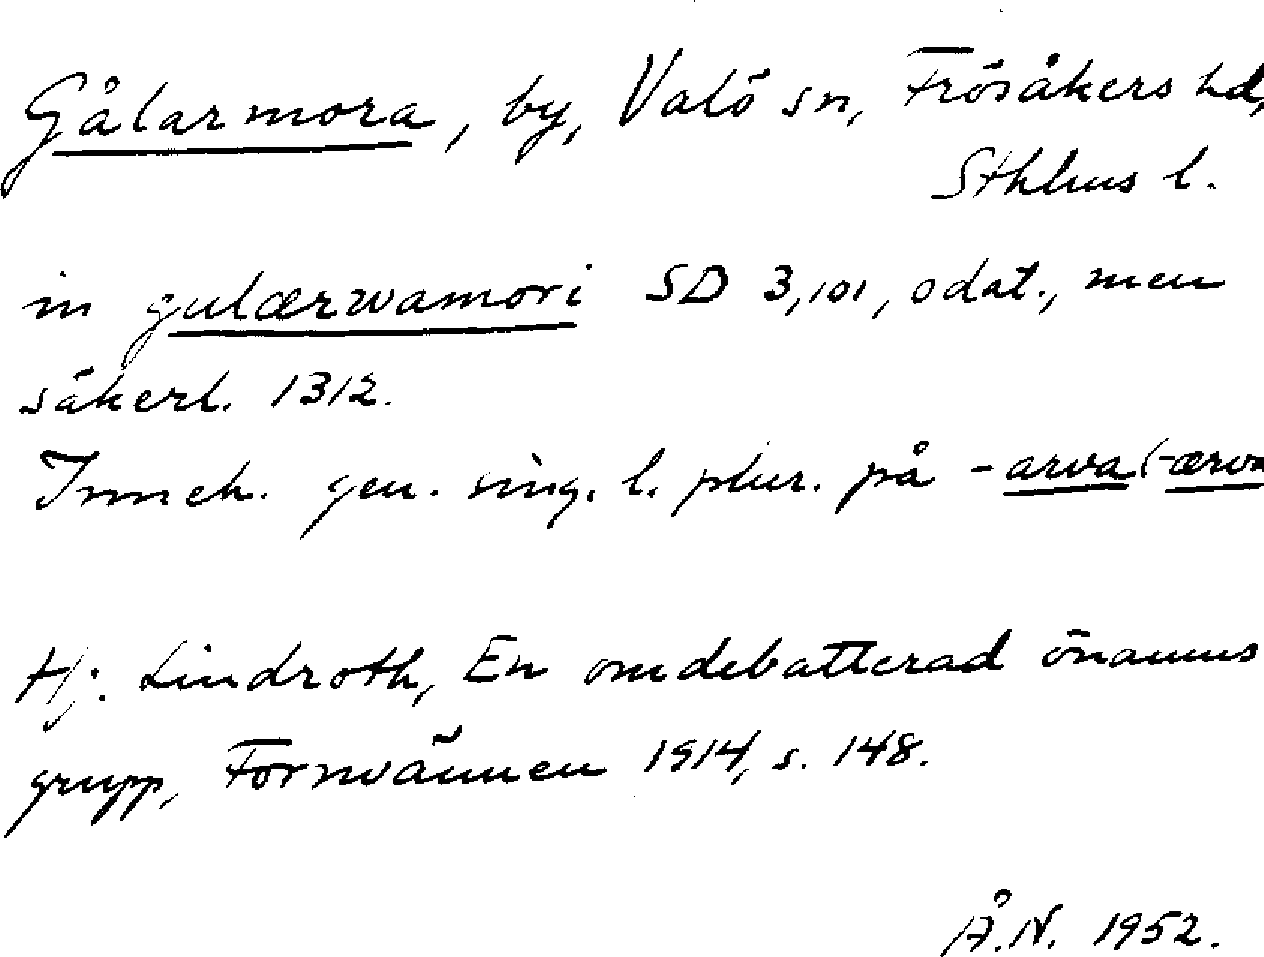 Gålarmora, by, Valö sn, Frösåkers hd,
Sthlms l.
in gulærwamori SD 3,101, odat., men
säkerl. 1312.
Inneh. gen. sing. l. plur. på -arva (-ærva
Hj. Lindroth, En omdebatterad önamns
grupp, Fornvännen 1914, s. 148.
Å.N. 1952.